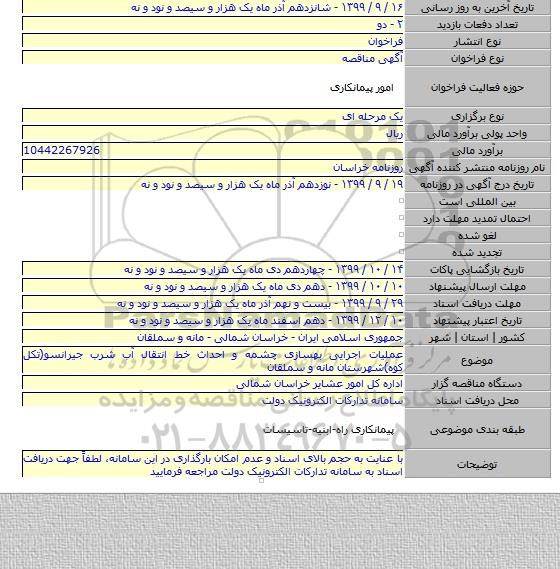 تاریخ آخرین به روز رسانی ۱۶ / ۹ / ۱۳۹۹ - شانزدهم آذر ماه یک هزار و سیصد و نود و نه
تعداد دفعات بازدید ۲ - دو
نوع انتشار فراخوان
نوع فراخوان آگهی مناقصه
حوزه فعالیت فراخوان امور پیمانکاری
نوع برگزاری یک مرحله ای
واحد پولی برآورد مالی ریال
برآورد مالی 10442267926
نام روزنامه منتشر کننده آگهی روزنامه خراسان
تاریخ درج آگهی در روزنامه ۱۹ / ۹ / ۱۳۹۹ - نوزدهم آذر ماه یک هزار و سیصد و نود و نه
بین المللی است
احتمال تمدید مهلت دارد
لغو شده
تجدید شده
تاریخ بازگشایی پاکات ۱۴ / ۱۰ / ۱۳۹۹ - چهاردهم دی ماه یک هزار و سیصد و نود و نه
مهلت ارسال پیشنهاد ۱۰ / ۱۰ / ۱۳۹۹ - دهم دی ماه یک هزار و سیصد و نود و نه
مهلت دریافت اسناد ۲۹ / ۹ / ۱۳۹۹ - بیست و نهم آذر ماه یک هزار و سیصد و نود و نه
تاریخ اعتبار پیشنهاد ۱۰ / ۱۲ / ۱۳۹۹ - دهم اسفند ماه یک هزار و سیصد و نود و نه
کشور | استان | شهر جمهوری اسلامی ایران - خراسان شمالی - مانه و سملقان
موضوع عملیات اجرایی بهسازی چشمه و احداث خط انتقال آب شرب جیرانسو(تکل
کوه)شهرستان مانه و سملقان
دستگاه مناقصه گزار اداره کل امور عشایر خراسان شمالی
محل دریافت اسناد سامانه تدارکات الکترونیک دولت
طبقه بندی موضوعی پیمانکاری راه-ابنیه-تاسیسات
توضیحات با عنایت به حجم بالای اسناد و عدم امکان بارگذاری در این سامانه، لطفاً جهت دریافت
اسناد به سامانه تدارکات الکترونیک دولت مراجعه فرمایید
۰۲۱-۸۸۳۴۹۶۷۰-۵